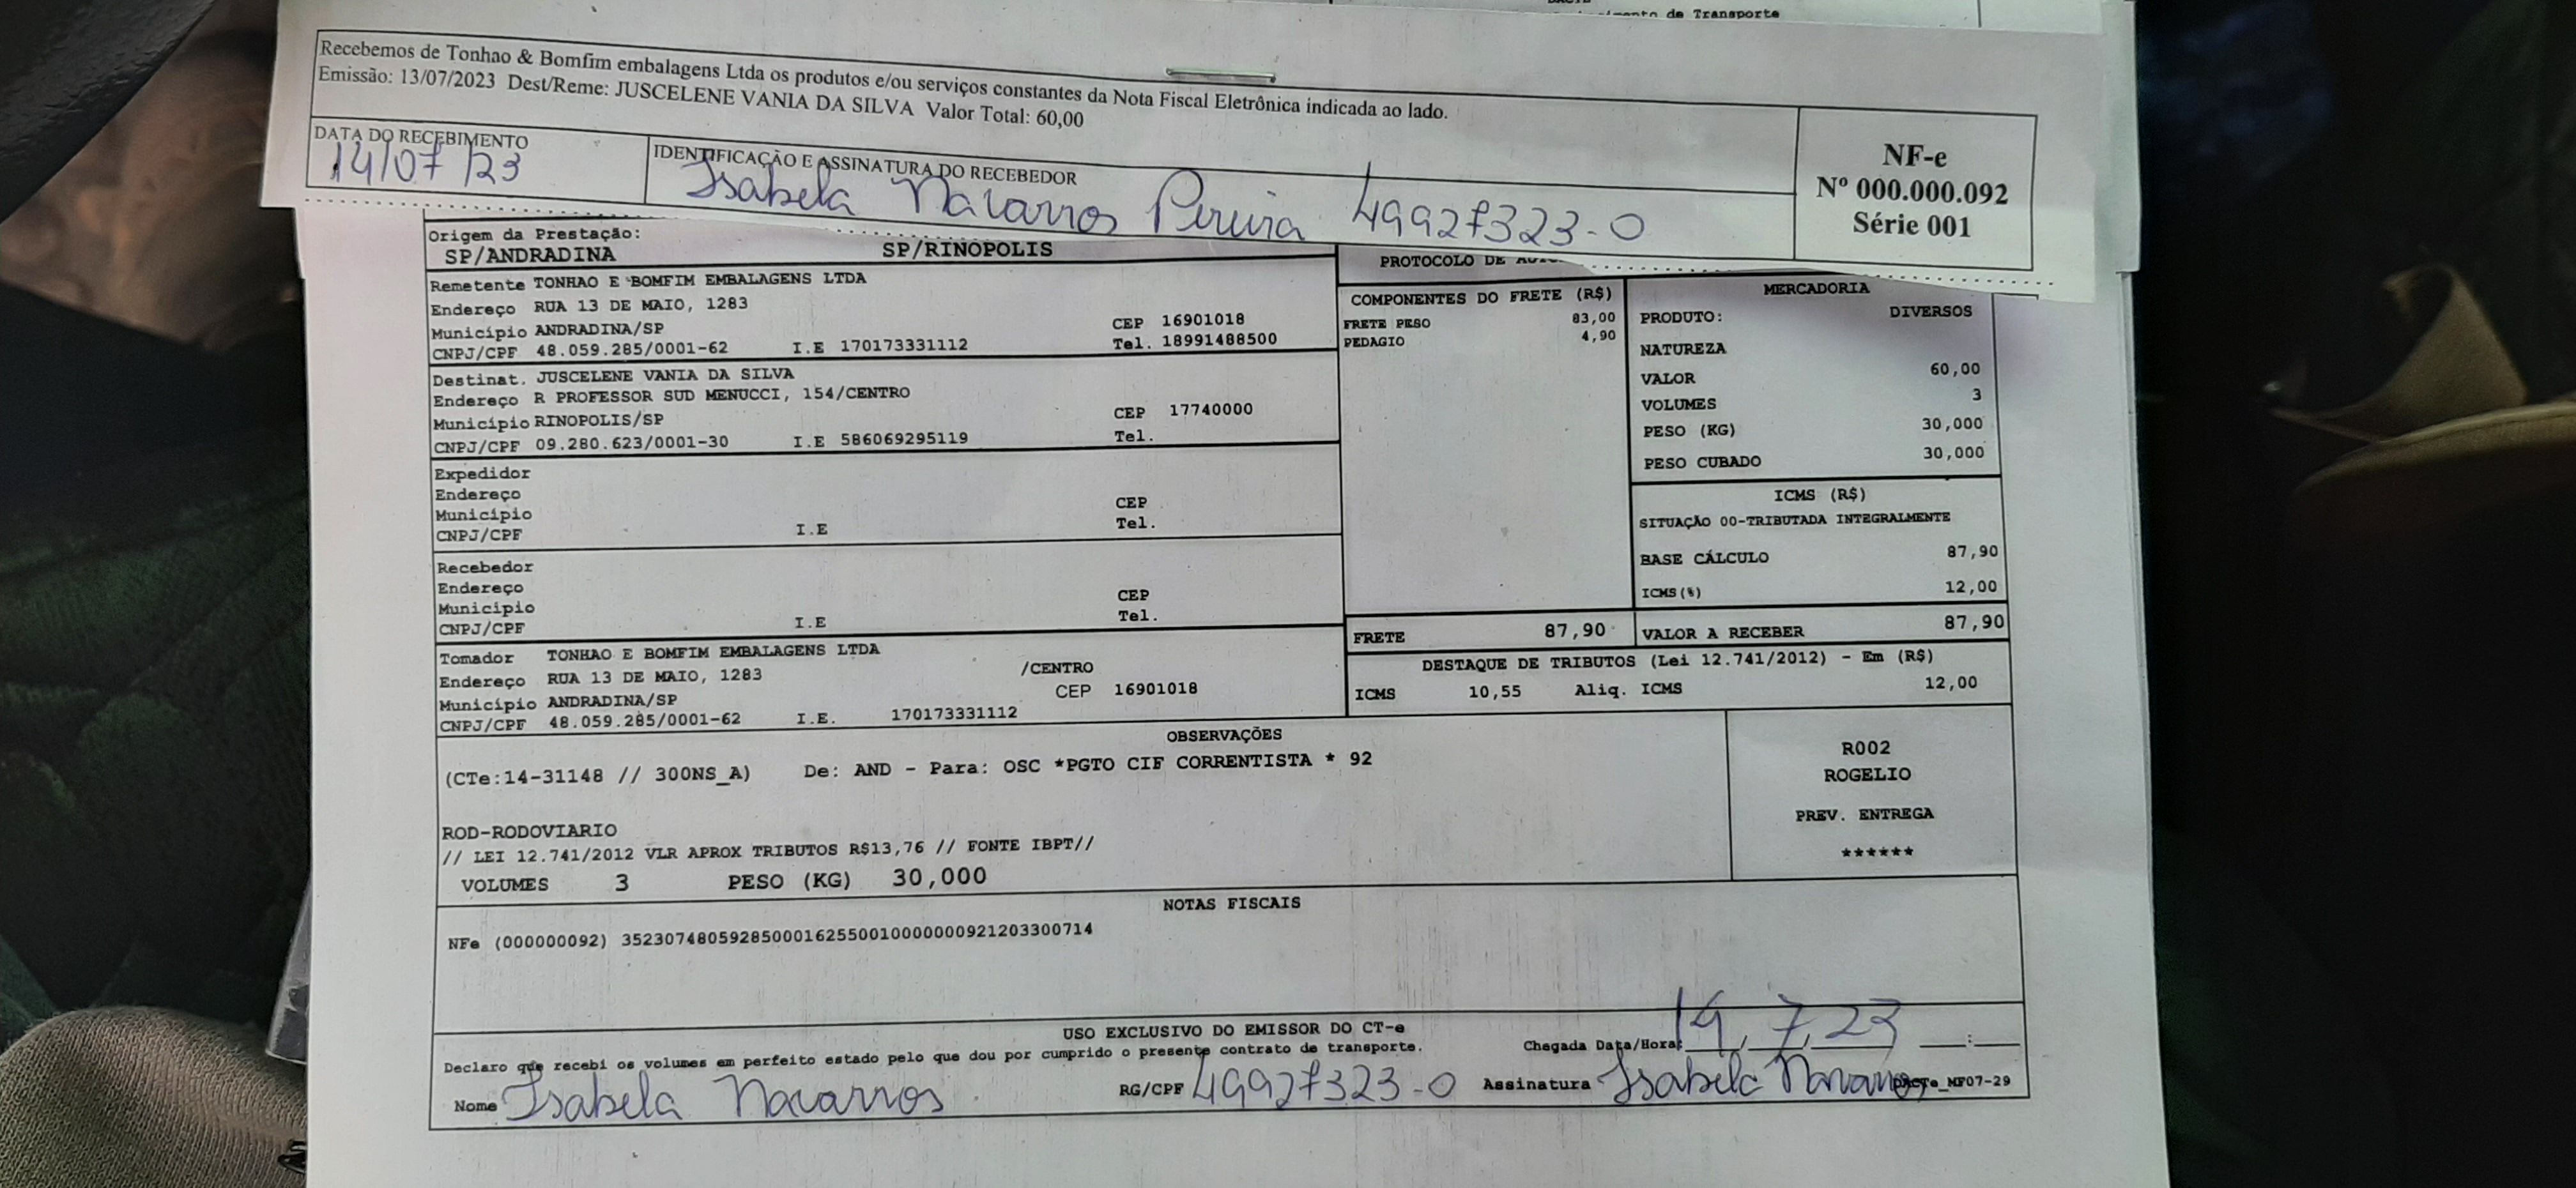 de Transporte
Recebemos de Tonhao & Bomfim embalagens Ltda os produtos e/ou serviços constantes da Nota Fiscal Eletrônica indicada ao lado.
Emissão: 13/07/2023 Dest/Reme: JUSCELENE VANIA DA SILVA Valor Total: 60,00
DATA DO RECEBIMENTO
14/07/23
IDENTIFICAÇÃO E ASSINATURA DO RECEBEDOR
Isabela Navarros Pereira 49927323-0
NF-e
Nº 000.000.092
Série 001
Origem da Prestação:
SP/ANDRADINA SP/RINOPOLIS
Remetente TONHAO E BOMFIM EMBALAGENS LTDA
Endereço RUA 13 DE MAIO, 1283
Município ANDRADINA/SP CEP 16901018
CNPJ/CPF 48.059.285/0001-62 I.E 170173331112 Tel. 18991488500
Destinat. JUSCELENE VANIA DA SILVA
Endereço R PROFESSOR SUD MENUCCI, 154/CENTRO
Município RINOPOLIS/SP CEP 17740000
CNPJ/CPF 09.280.623/0001-30 I.E 586069295119 Tel.
Expedidor
Endereço
Município CEP
CNPJ/CPF I.E Tel.
Recebedor
Endereço
Município CEP
CNPJ/CPF I.E Tel.
Tomador TONHAO E BOMFIM EMBALAGENS LTDA
Endereço RUA 13 DE MAIO, 1283 /CENTRO
Município ANDRADINA/SP CEP 16901018
CNPJ/CPF 48.059.285/0001-62 I.E. 170173331112
PROTOCOLO DE
COMPONENTES DO FRETE (R$)
FRETE PESO 83,00
PEDAGIO 4,90
MERCADORIA
PRODUTO: DIVERSOS
NATUREZA
VALOR 60,00
VOLUMES 3
PESO (KG) 30,000
PESO CUBADO 30,000
ICMS (R$)
SITUAÇÃO 00-TRIBUTADA INTEGRALMENTE
BASE CÁLCULO 87,90
ICMS(%) 12,00
FRETE 87,90 VALOR A RECEBER 87,90
DESTAQUE DE TRIBUTOS (Lei 12.741/2012) - Em (R$)
ICMS 10,55 Aliq. ICMS 12,00
OBSERVAÇÕES
(CTe:14-31148 // 300NS_A) De: AND - Para: OSC *PGTO CIF CORRENTISTA * 92
ROD-RODOVIARIO
// LEI 12.741/2012 VLR APROX TRIBUTOS R$13,76 // FONTE IBPT//
VOLUMES 3 PESO (KG) 30,000
R002
ROGELIO
PREV. ENTREGA
******
NOTAS FISCAIS
NFe (000000092) 35230748059285000162550010000000921203300714
USO EXCLUSIVO DO EMISSOR DO CT-e
Declaro que recebi os volumes em perfeito estado pelo que dou por cumprido o presente contrato de transporte.
Chegada Data/Hora: 14/7/23 __:__
Nome Isabela Navarros RG/CPF 49927323-0 Assinatura Isabela Navarros
DACTe_MF07-29